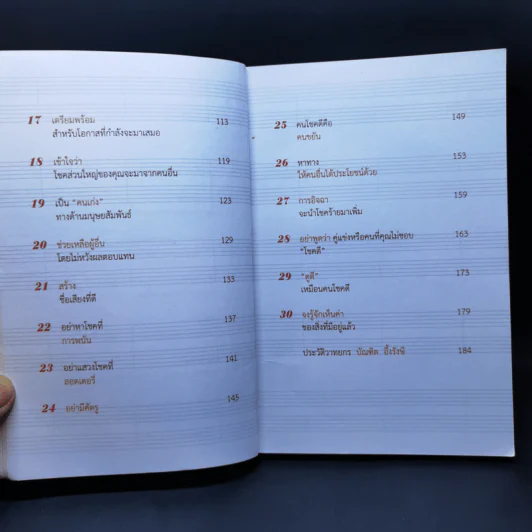 17 เตรียมพร้อม 113
สำหรับโอกาสที่กำลังจะมาเสมอ
18 เข้าใจว่า 119
โชคส่วนใหญ่ของคุณจะมาจากคนอื่น
19 เป็น "คนเก่ง" 123
ทางด้านมนุษยสัมพันธ์
20 ช่วยเหลือผู้อื่น 129
โดยไม่หวังผลตอบแทน
21 สร้าง 133
ชื่อเสียงที่ดี
22 อย่าหาโชคที่ 137
การพนัน
23 อย่าแสวงโชคที่ 141
ลอตเตอรี่
24 อย่ามีศัตรู 145
25 คนโชคดีคือ 149
คนขยัน
26 หาทาง 153
ให้คนอื่นได้ประโยชน์ด้วย
27 การอิจฉา 159
จะนำโชคร้ายมาเพิ่ม
28 อย่าพูดว่า คู่แข่งหรือคนที่คุณไม่ชอบ 163
"โชคดี"
29 "ดูดี" 173
เหมือนคนโชคดี
30 จงรู้จักเห็นค่า 179
ของสิ่งที่มีอยู่แล้ว
ประวัติวิทยากร บัณฑิต อึ้งรังษี 184